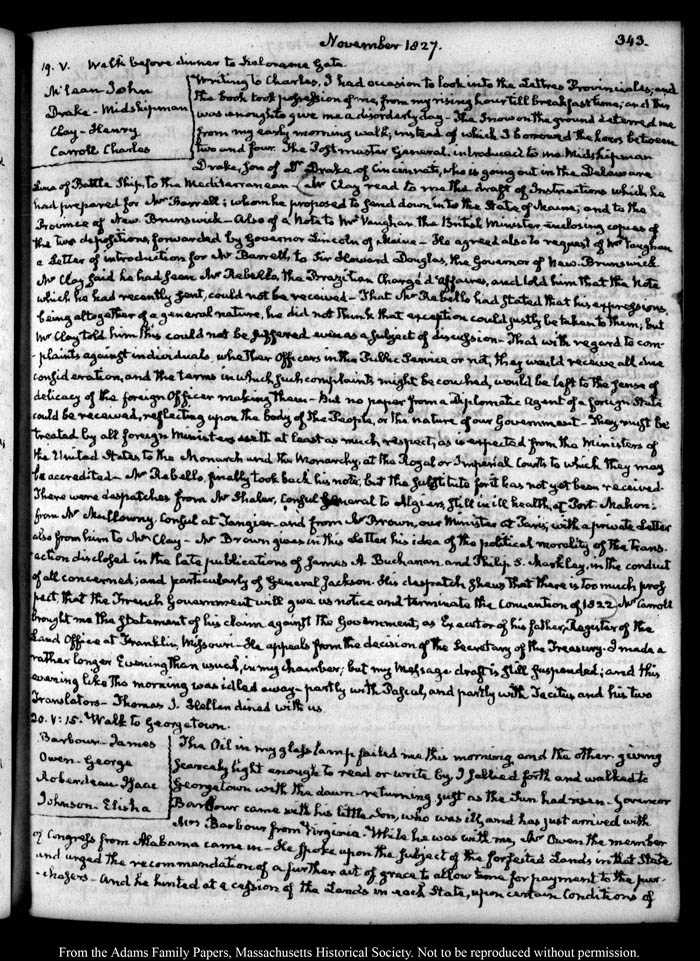 November 1827.
343.
19. V. Walk before dinner to Kalorama Gate.
McLean John
Drake - Midshipman
Clay - Henry
Carroll Charles
Writing to Charles, I had occasion to look into the Lettres Provinciales; and
the book took possession of me, from my rising hour till breakfast time; and this
was enough to give me a disorderly day - The Snow on the ground deterred me
from my early morning walk, instead of which I borrowed the hours between
two and four. The Postmaster General, introduced to me Midshipman
Drake, son of Dr Drake of Cincinnati, who is going out in the Delaware
Line of Battle Ship, to the Mediterranean - Mr Clay read to me the draft of Instructions which he
had prepared for Mr Barrell; whom he proposed to send down into the State of Maine; and to the
Province of New Brunswick - Also of a Note to Mr Vaughan the British Minister enclosing copies of
the two depositions, forwarded by Governor Lincoln of Maine - He agreed also to request of Mr Vaughan
a Letter of introduction for Mr Barrell, to Sir Howard Douglas, the Governor of New-Brunswick.
Mr Clay said he had seen Mr Rebello, the Brazilian Chargé d'affaires, and told him that the Note
which he had recently sent, could not be received - That Mr Rebello had stated that his expressions,
being altogether of a general nature, he did not think that exception could justly be taken to them; but
Mr Clay told him this could not be suffered even as a subject of discussion - That with regard to com-
plaints against individuals, whether Officers in the Public Service or not, they would receive all due
consideration, and the terms in which such complaints might be couched, would be left to the sense of
delicacy of the foreign Officer making them - But no paper from a Diplomatic Agent of a foreign State
could be received, reflecting upon the body of the People, or the nature of our Government - They must be
treated by all foreign Ministers with at least as much respect, as is expected from the Ministers of
the United States to the Monarch and the Monarchy, at the Royal or Imperial Courts to which they may
be accredited - Mr Rebello, finally took back his note, but the substitute for it has not yet been received.
There were despatches from Mr Shaler, Consul General to Algiers, still in ill health, at Port-Mahon:
from Mr Mullowny, Consul at Tangier and from Mr Brown, our Minister at Paris, with a private Letter
also from him to Mr Clay - Mr Brown gives in this Letter his idea of the political morality of the trans-
action disclosed in the late publications of James A. Buchanan and Philip S. Markley, in the conduct
of all concerned; and particularly of General Jackson. His despatch shews that there is too much pros-
pect that the French Government will give us notice and terminate the Convention of 1822. Mr Carroll
brought me the statement of his claim against the Government, as Executor of his father, Register of the
Land Office at Franklin, Missouri - He appeals from the decision of the Secretary of the Treasury. I made a
rather longer Evening than usual, in my chamber; but my Message draft is still suspended; and this
evening like the morning was idled away - partly with Pascal, and partly with Tacitus and his two
Translators - Thomas J. Hellen dined with us.
20. V:15. Walk to Georgetown.
Barbour - James
Owen - George
Roberdeau - Isaac
Johnson - Elisha
The Oil in my glass lamp failed me this morning, and the other giving
scarcely light enough to read or write by, I sallied forth and walked to
Georgetown with the dawn - returning just as the Sun had risen - Governor
Barbour came with his little Son, who was ill, and has just arrived with
Mrs Barbour from Virginia. While he was with me, Mr Owen the member
of Congress from Alabama came in - He spoke upon the subject of the forfeited Lands in that State
and urged the recommendation of a further act of grace to allow time for payment to the pur-
-chasers - And he hinted at a cession of the Lands in each State, upon certain Conditions of
From the Adams Family Papers, Massachusetts Historical Society. Not to be reproduced without permission.